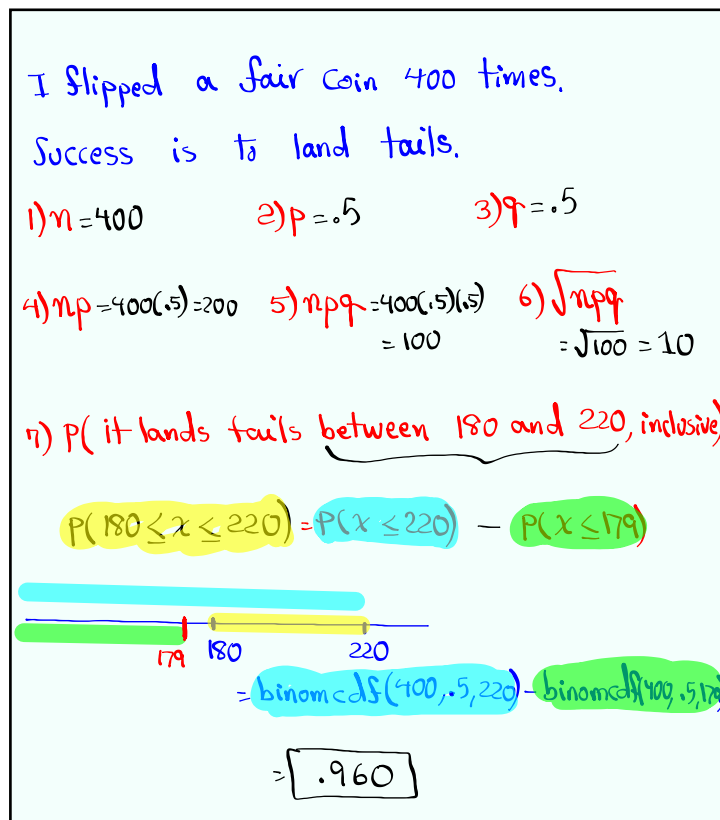 I flipped a fair coin 400 times.
Success is to land tails.
1) n = 400 2) p = .5 3) q = .5
4) np = 400(.5) = 200 5) npq = 400(.5)(.5) 6) √npq
= 100 = √100 = 10
7) P( it lands tails between 180 and 220, inclusive)
P(180 ≤ x ≤ 220) = P(x ≤ 220) - P(x ≤ 179)
179 180 220
= binomcdf(400, .5, 220) - binomcdf(400, .5, 179)
= .960